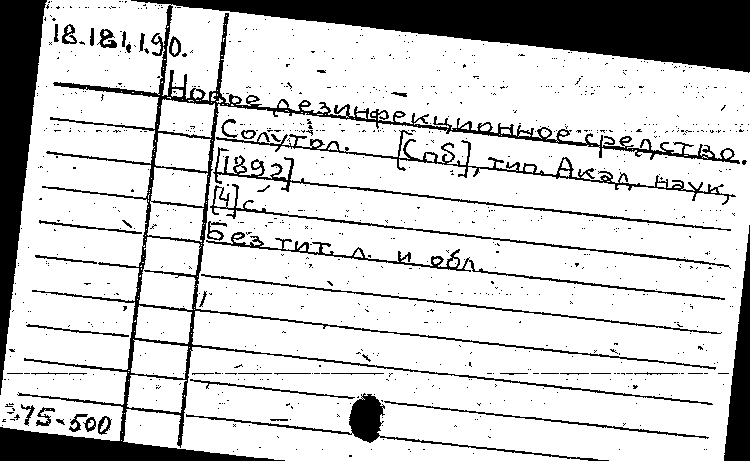 18.181.1.90.
Новое дезинфекционное средство.
Солутол. [Спб.], тип. Акад. наук,
[1892].
[4] с.
Без тит. л. и обл.
375-500